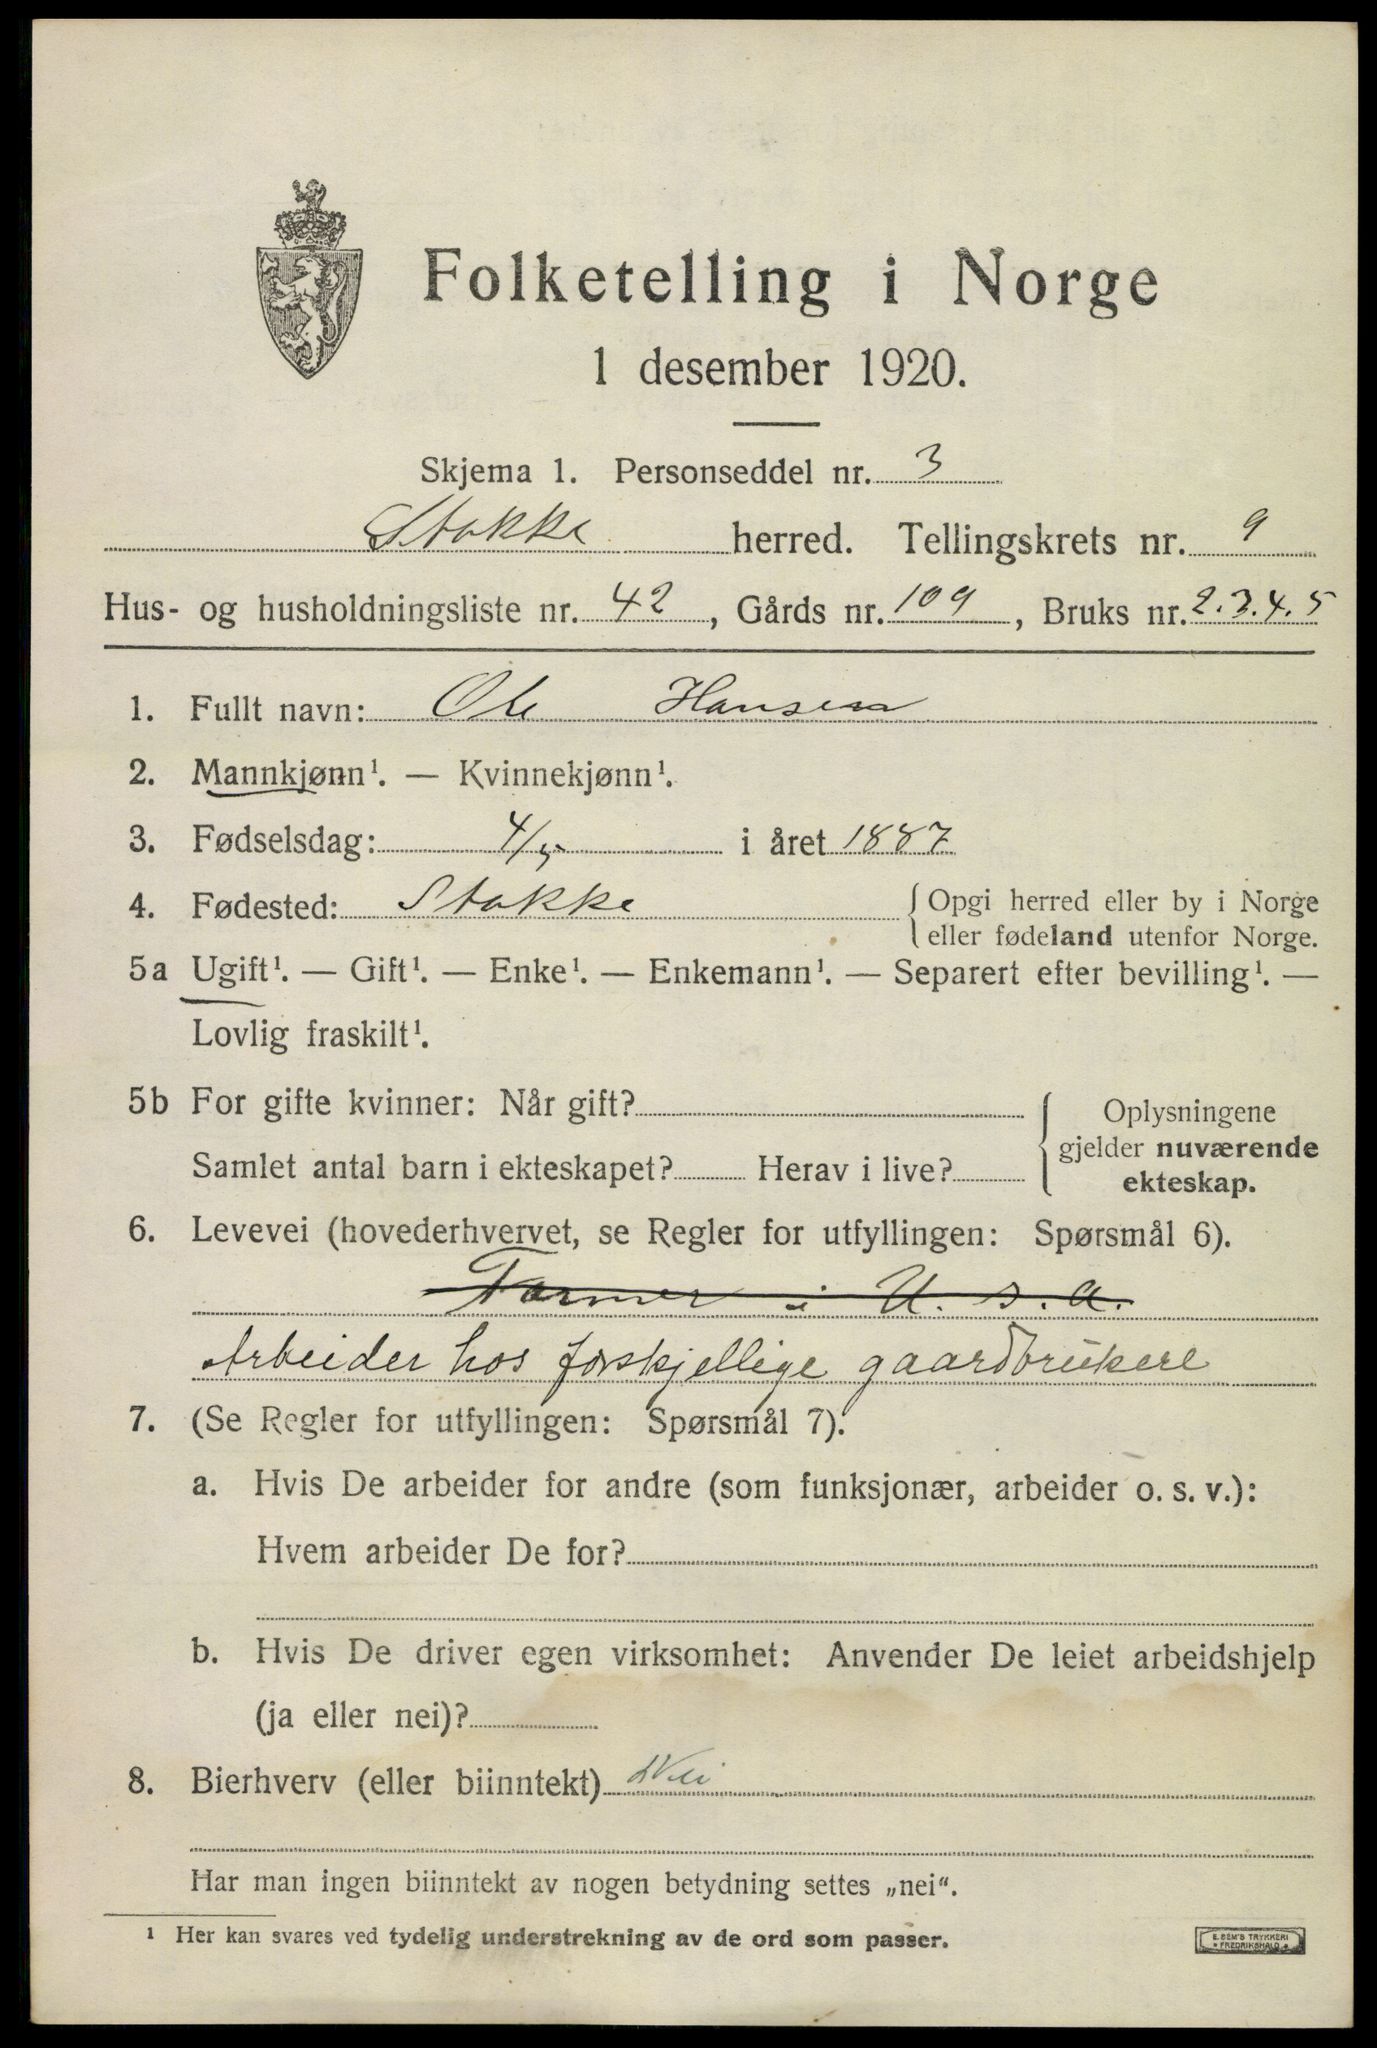 Folketelling i Norge
1 desember 1920.
Skjema 1. Personseddel nr. 3
Stokke herred. Tellingskrets nr. 9
Hus- og husholdningsliste nr. 42, Gårds nr. 109, Bruks nr. 2.3.4.5
1. Fullt navn: Ole Hansen
2. Mannkjønn¹. — Kvinnekjønn¹.
3. Fødselsdag: 4/5 i året 1887
4. Fødested: Stokke { Opgi herred eller by i Norge
eller fødeland utenfor Norge.
5a Ugift¹. — Gift¹. — Enke¹. — Enkemann¹. — Separert efter bevilling¹. —
Lovlig fraskilt¹.
5b For gifte kvinner: Når gift? { Oplysningene
gjelder nuværende
Samlet antal barn i ekteskapet? Herav i live?
ekteskap.
6. Levevei (hovederhvervet, se Regler for utfyllingen: Spørsmål 6).
Farmer i U. S. A.
Arbeider hos forskjellige gaardbrukere
7. (Se Regler for utfyllingen: Spørsmål 7).
a. Hvis De arbeider for andre (som funksjonær, arbeider o. s. v.):
Hvem arbeider De for?
b. Hvis De driver egen virksomhet: Anvender De leiet arbeidshjelp
(ja eller nei)?
8. Bierhverv (eller biinntekt) Nei
Har man ingen biinntekt av nogen betydning settes „nei“.
¹ Her kan svares ved tydelig understrekning av de ord som passer.
E. SEM'S TRYKKERI
FREDRIKSHALD